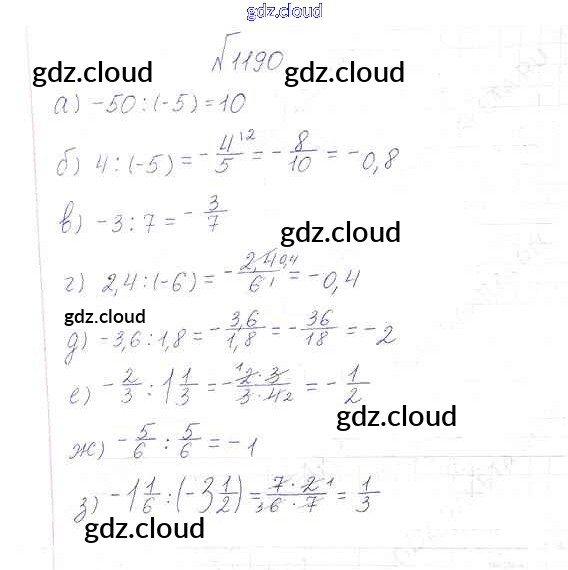 gdz.cloud
№1190
gdz.cloud gdz.cloud
а) -50 : (-5) = 10
б) 4 : (-5) = - 4/5 ^(·2) = - 8/10 = -0,8
в) -3 : 7 = - 3/7
gdz.cloud
г) 2,4 : (-6) = - 2,4 ^(0,4)/6 ₁ = -0,4
gdz.cloud
д) -3,6 : 1,8 = - 3,6/1,8 = - 36/18 = -2
е) - 2/3 : 1 1/3 = - ¹2·3/3·4₂ = - 1/2
gdz.cloud
ж) - 5/6 : 5/6 = -1
з) -1 1/6 : (-3 1/2) = 7·2¹/₃6·7 = 1/3
gdz.cloud gdz.cloud